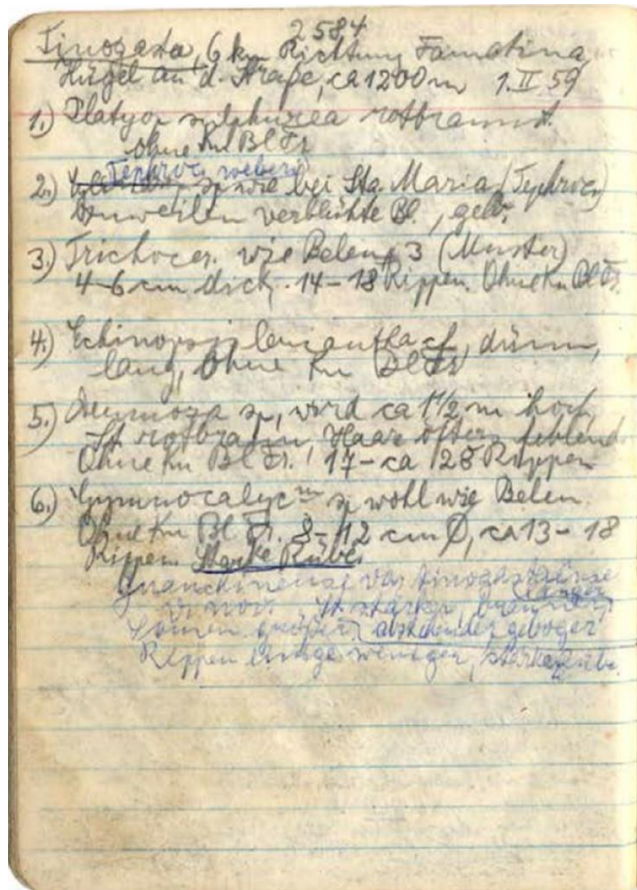 2584
Tinogasta, 6 km Richtung Famatina,
Hügel an d. Straße, ca 1200 m 1.II 59
1.) Platyop sulphurea rotbraun St.
Ohne Kn Bl Fr
Tephroc. weberi
2.) sp wie bei Sta. Maria (Tephroc)
bisweilen verblühte Bl., gelb.
3.) Trichocer. wie Belen 3 (Muster)
4-6 cm dick. 14-18 Rippen. Ohne Kn Bl Fr.
4.) Echinopsis leucantha cf, dünn,
lang, Ohne Kn Bl Fr
5.) Denmoza sp, wird ca 1 1/2 m hoch,
St rotbraun Haar öfters fehlend
Ohne Kn Bl Fr. 17 - ca 28 Rippen
6.) Gymnocalyc^m sp wohl wie Belen.
Ohne Kn Bl Fr. 8-12 cm Ø, ca 13-18
Rippen Starke Rübe.
var tinogastense
v. nov. St stärker,
länger
Samen größer, abstehender gebogen
Rippen weniger, starke Rübe.